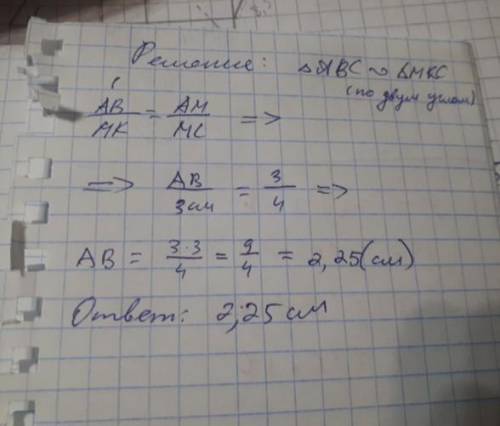 Решение: △ABC ~ △MKC
(по двум углам)
AB/MK = AM/MC =>
=> AB/3см = 3/4 =>
AB = 3·3/4 = 9/4 = 2,25(см)
Ответ: 2,25 см